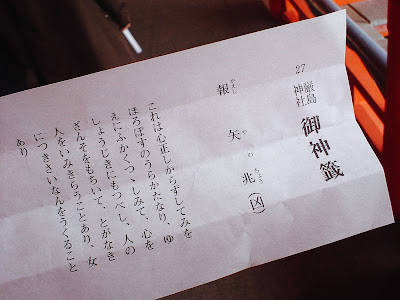 27
厳島
神社
御神籤
報矢兆(凶)
これは心正しからずしてみを
ほろぼすのうらかたなり、ゆ
えにふかくつゝしみて、心を
しょうじきにもつべし、人の
ざんそをもちいて、とがなき
人をいみきらうことあり、女
につきさいなんをうくること
あり